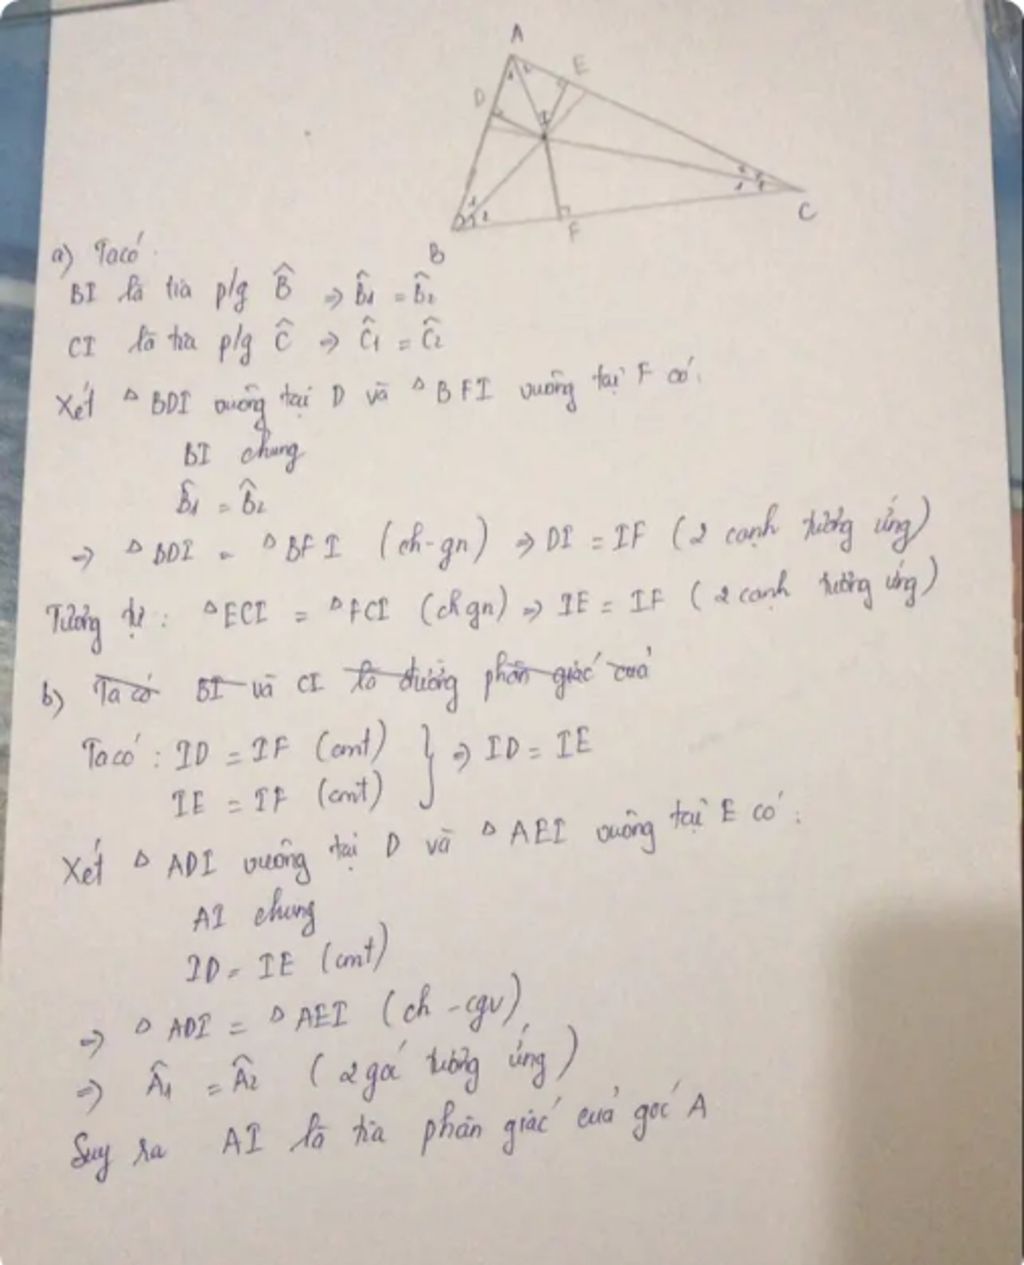 A
E
D
I
C
F
B
a) Ta có:
BI là tia p/g B̂ ⇒ B̂₁ = B̂₂
CI là tia p/g Ĉ ⇒ Ĉ₁ = Ĉ₂
Xét △BDI vuông tại D và △BFI vuông tại F có:
BI chung
B̂₁ = B̂₂
⇒ △BDI = △BFI (ch-gn) ⇒ DI = IF (2 cạnh tương ứng)
Tương tự: △ECI = △FCI (ch gn) ⇒ IE = IF (2 cạnh tương ứng)
b) Ta có BI và CI là đường phân giác của
Ta có: ID = IF (cmt) } ⇒ ID = IE
IE = IF (cmt)
Xét △ADI vuông tại D và △AEI vuông tại E có:
AI chung
ID = IE (cmt)
⇒ △ADI = △AEI (ch-cgv)
⇒ Â₁ = Â₂ (2 góc tương ứng)
Suy ra AI là tia phân giác của góc A